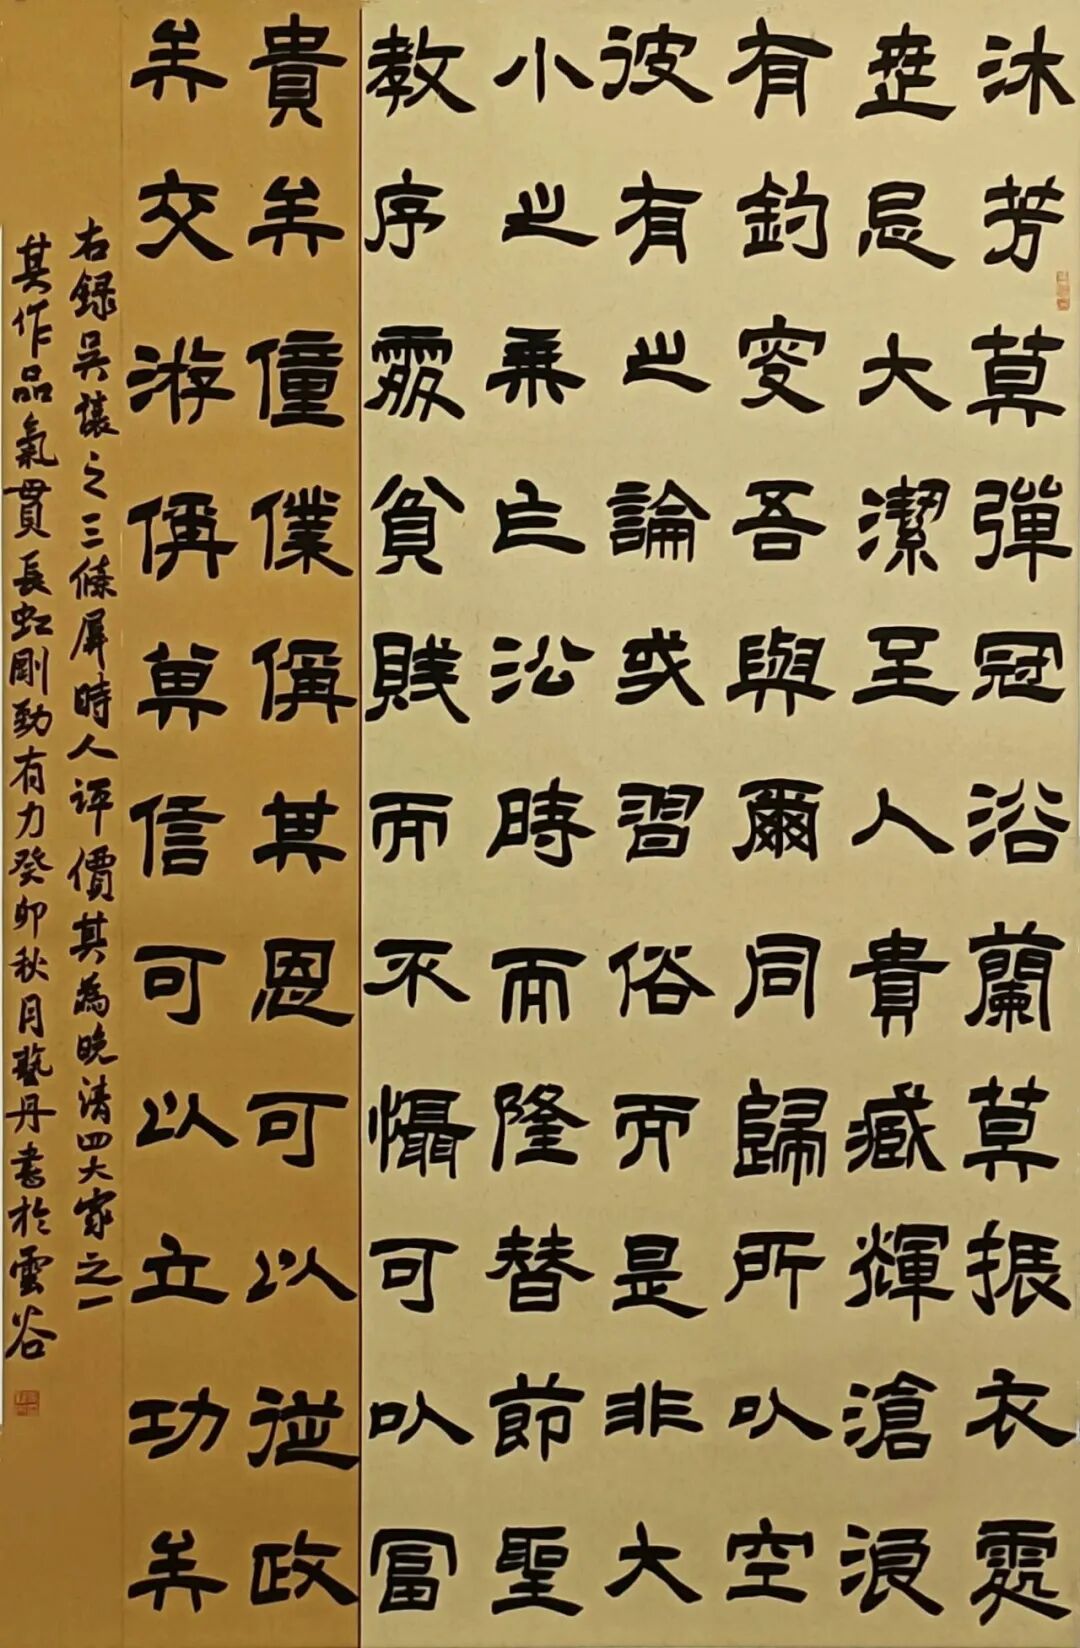 沐芳莫彈冠浴蘭莫振衣處
世忌大潔至人貴臧輝滄浪
有釣叟吾與爾同歸所以空
彼有之論或習俗而是非大
小之乘乍沿時而隆替節聖
教序處貧賤而不懾可以富
貴矣僮僕稱其恩可以從政
矣交游稱其信可以立功矣
右錄吳讓之三條屏時人評價其為晚清四大家之一
其作品氣貫長虹剛勁有力癸卯秋月藝丹書於雲谷